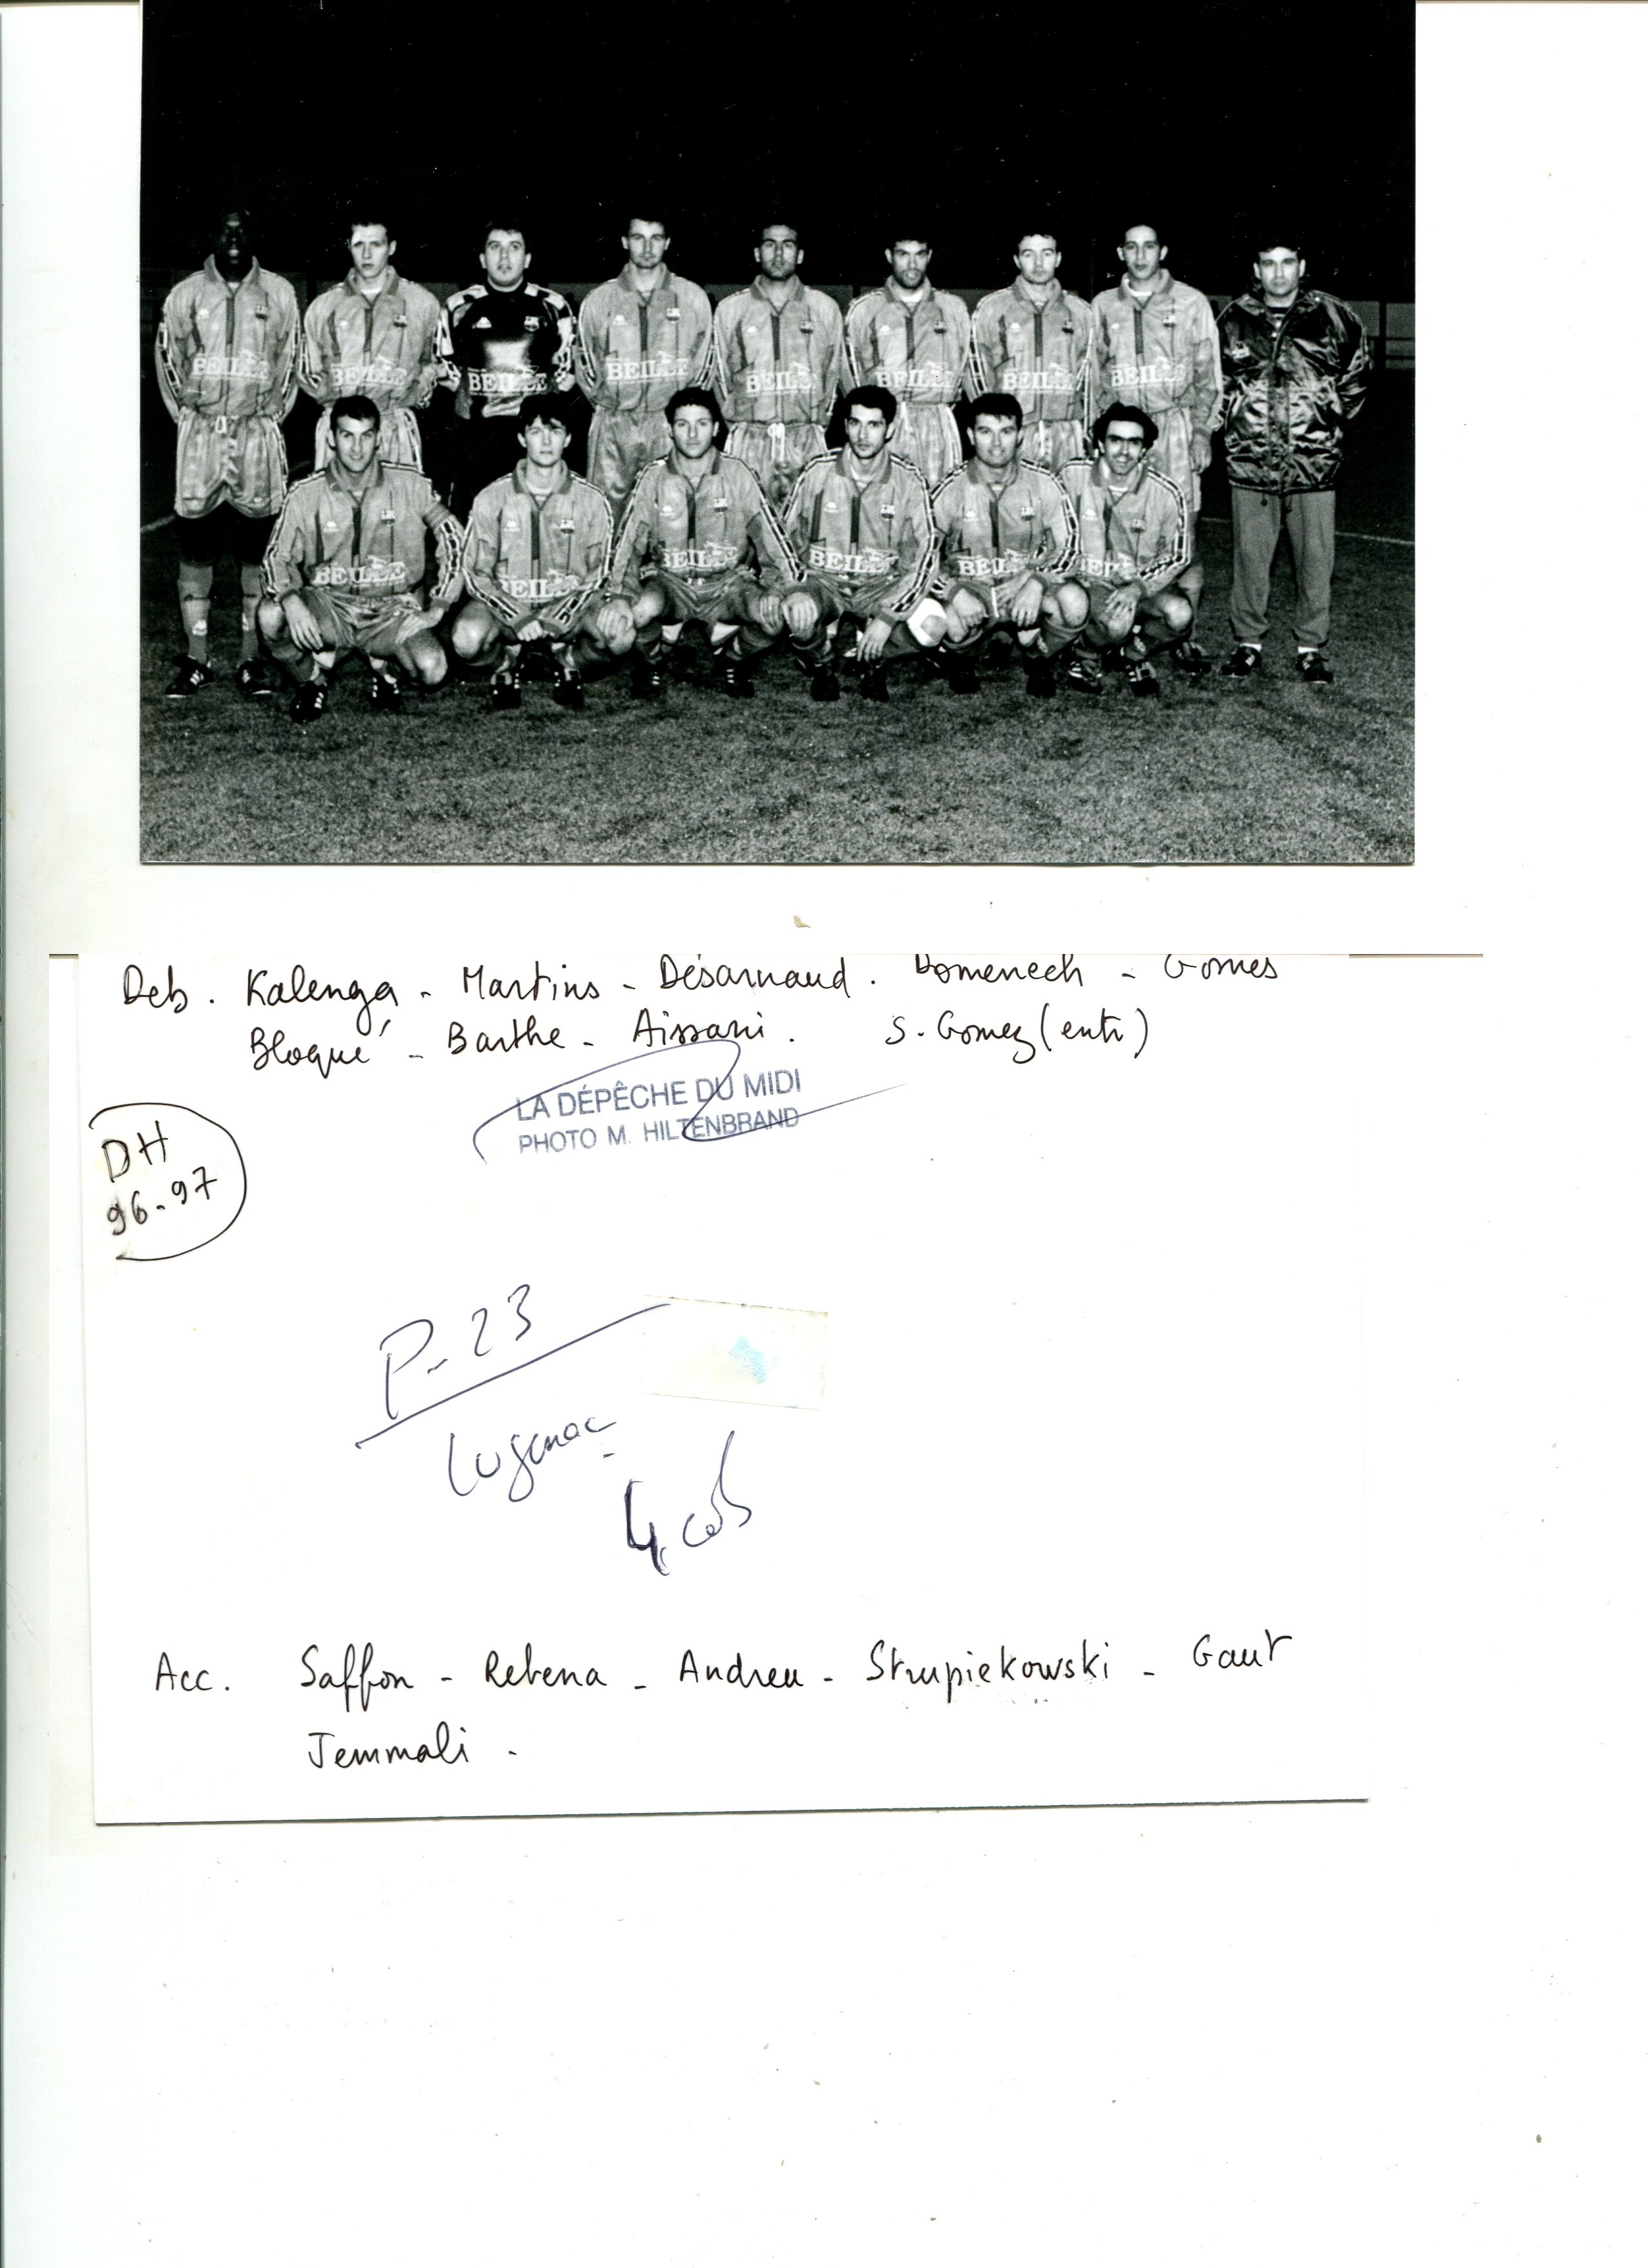 BEILLE BEILLE BEILLE BEILLE BEILLE BEILLE BEILLE BEILLE
BEILLE BEILLE BEILLE BEILLE BEILLE BEILLE
Deb. Kalenga - Martins - Désarnaud. Domenech - Gomes
Bloqué - Barthe - Aissani. S. Gomez (entr)
LA DÉPÊCHE DU MIDI
PHOTO M. HILTENBRAND
DH
96-97
P-23
Luzenac
4 cols
Acc. Saffon - Rebena - Andreu - Strupiekowski - Gaut
Jemmali -